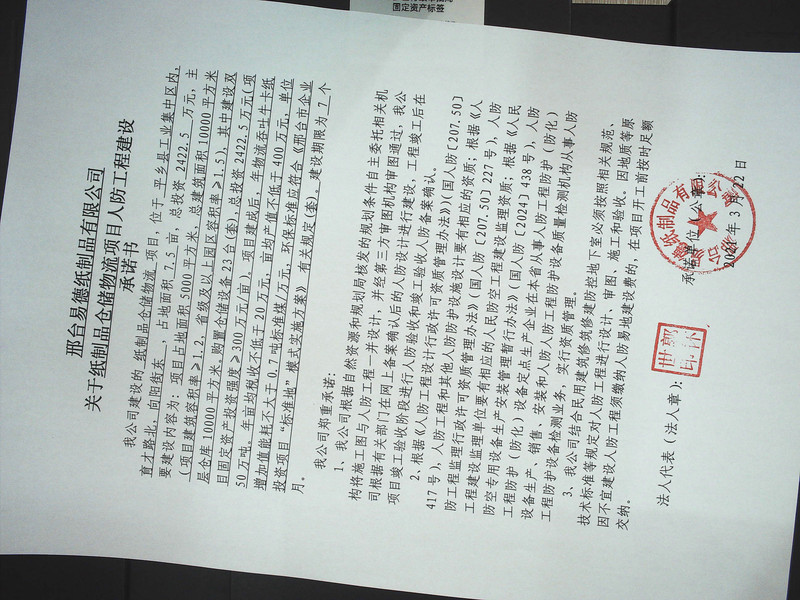 邢台易德纸制品有限公司
关于纸制品仓储物流项目人防工程建设
承诺书
我公司建设的 纸制品仓储物流 项目，位于 平乡县工业集中区内，
育才路北，向阳街东 ，占地面积 7.5 亩，总投资 2422.5 万元，主
要建设内容为：项目占地面积 5000 平方米，总建筑面积 10000 平方米
（项目建筑容积率≥1.2，省级及以上园区容积率≥1.5），其中建设双
层仓库 10000 平方米，购置仓储设备 23 台(套)，总投资 2422.5 万元(项
目固定资产投资强度≥300 万元/亩)。项目建成后，年物流吞吐牛卡纸
50 万吨。年亩均税收不低于 20 万元，亩均产值不低于 400 万元，单位
增加值能耗不大于 0.7 吨标准煤/万元，环保标准应符合《邢台市企业
投资项目“标准地”模式实施方案》有关规定(套)。建设期限为 7 个
月。
我公司郑重承诺：
1、我公司根据自然资源和规划局核发的规划条件自主委托相关机
构将施工图与人防工程一并设计，并经第三方审图机构审图通过，我公
司根据有关部门在网上备案确认后的人防设计进行建设，工程竣工后在
项目竣工验收阶段进行人防验收和竣工验收人防备案确认。
2、根据《人防工程设计行政许可资质管理办法》(国人防〔207.50〕
417 号)，人防工程和其他人防防护设施设计要有相应的资质；根据《人
防工程监理行政许可资质管理办法》(国人防〔207.50〕227 号)，人防
工程建设监理单位要有相应的人民防空工程建设监理资质；根据《人民
防空专用设备生产安装管理暂行办法》(国人防〔2024〕438 号)，人防
工程防护（防化）设备定点生产企业在本省从事人防工程防护（防化）
设备生产、销售、安装和人防人防工程防护设备质量检测机构从事人防
工程防护设备检测业务，实行资质管理。
3、我公司结合民用建筑修筑修建防控地下室必须按照相关规范、
技术标准等规定对人防工程进行设计、审图、施工和验收。因地质等原
因不宜建设人防工程须缴纳人防易地建设费的，在项目开工前按时足额
交纳。
承诺单位（公章）：
法人代表（法人章）：
年 3 月 22 日